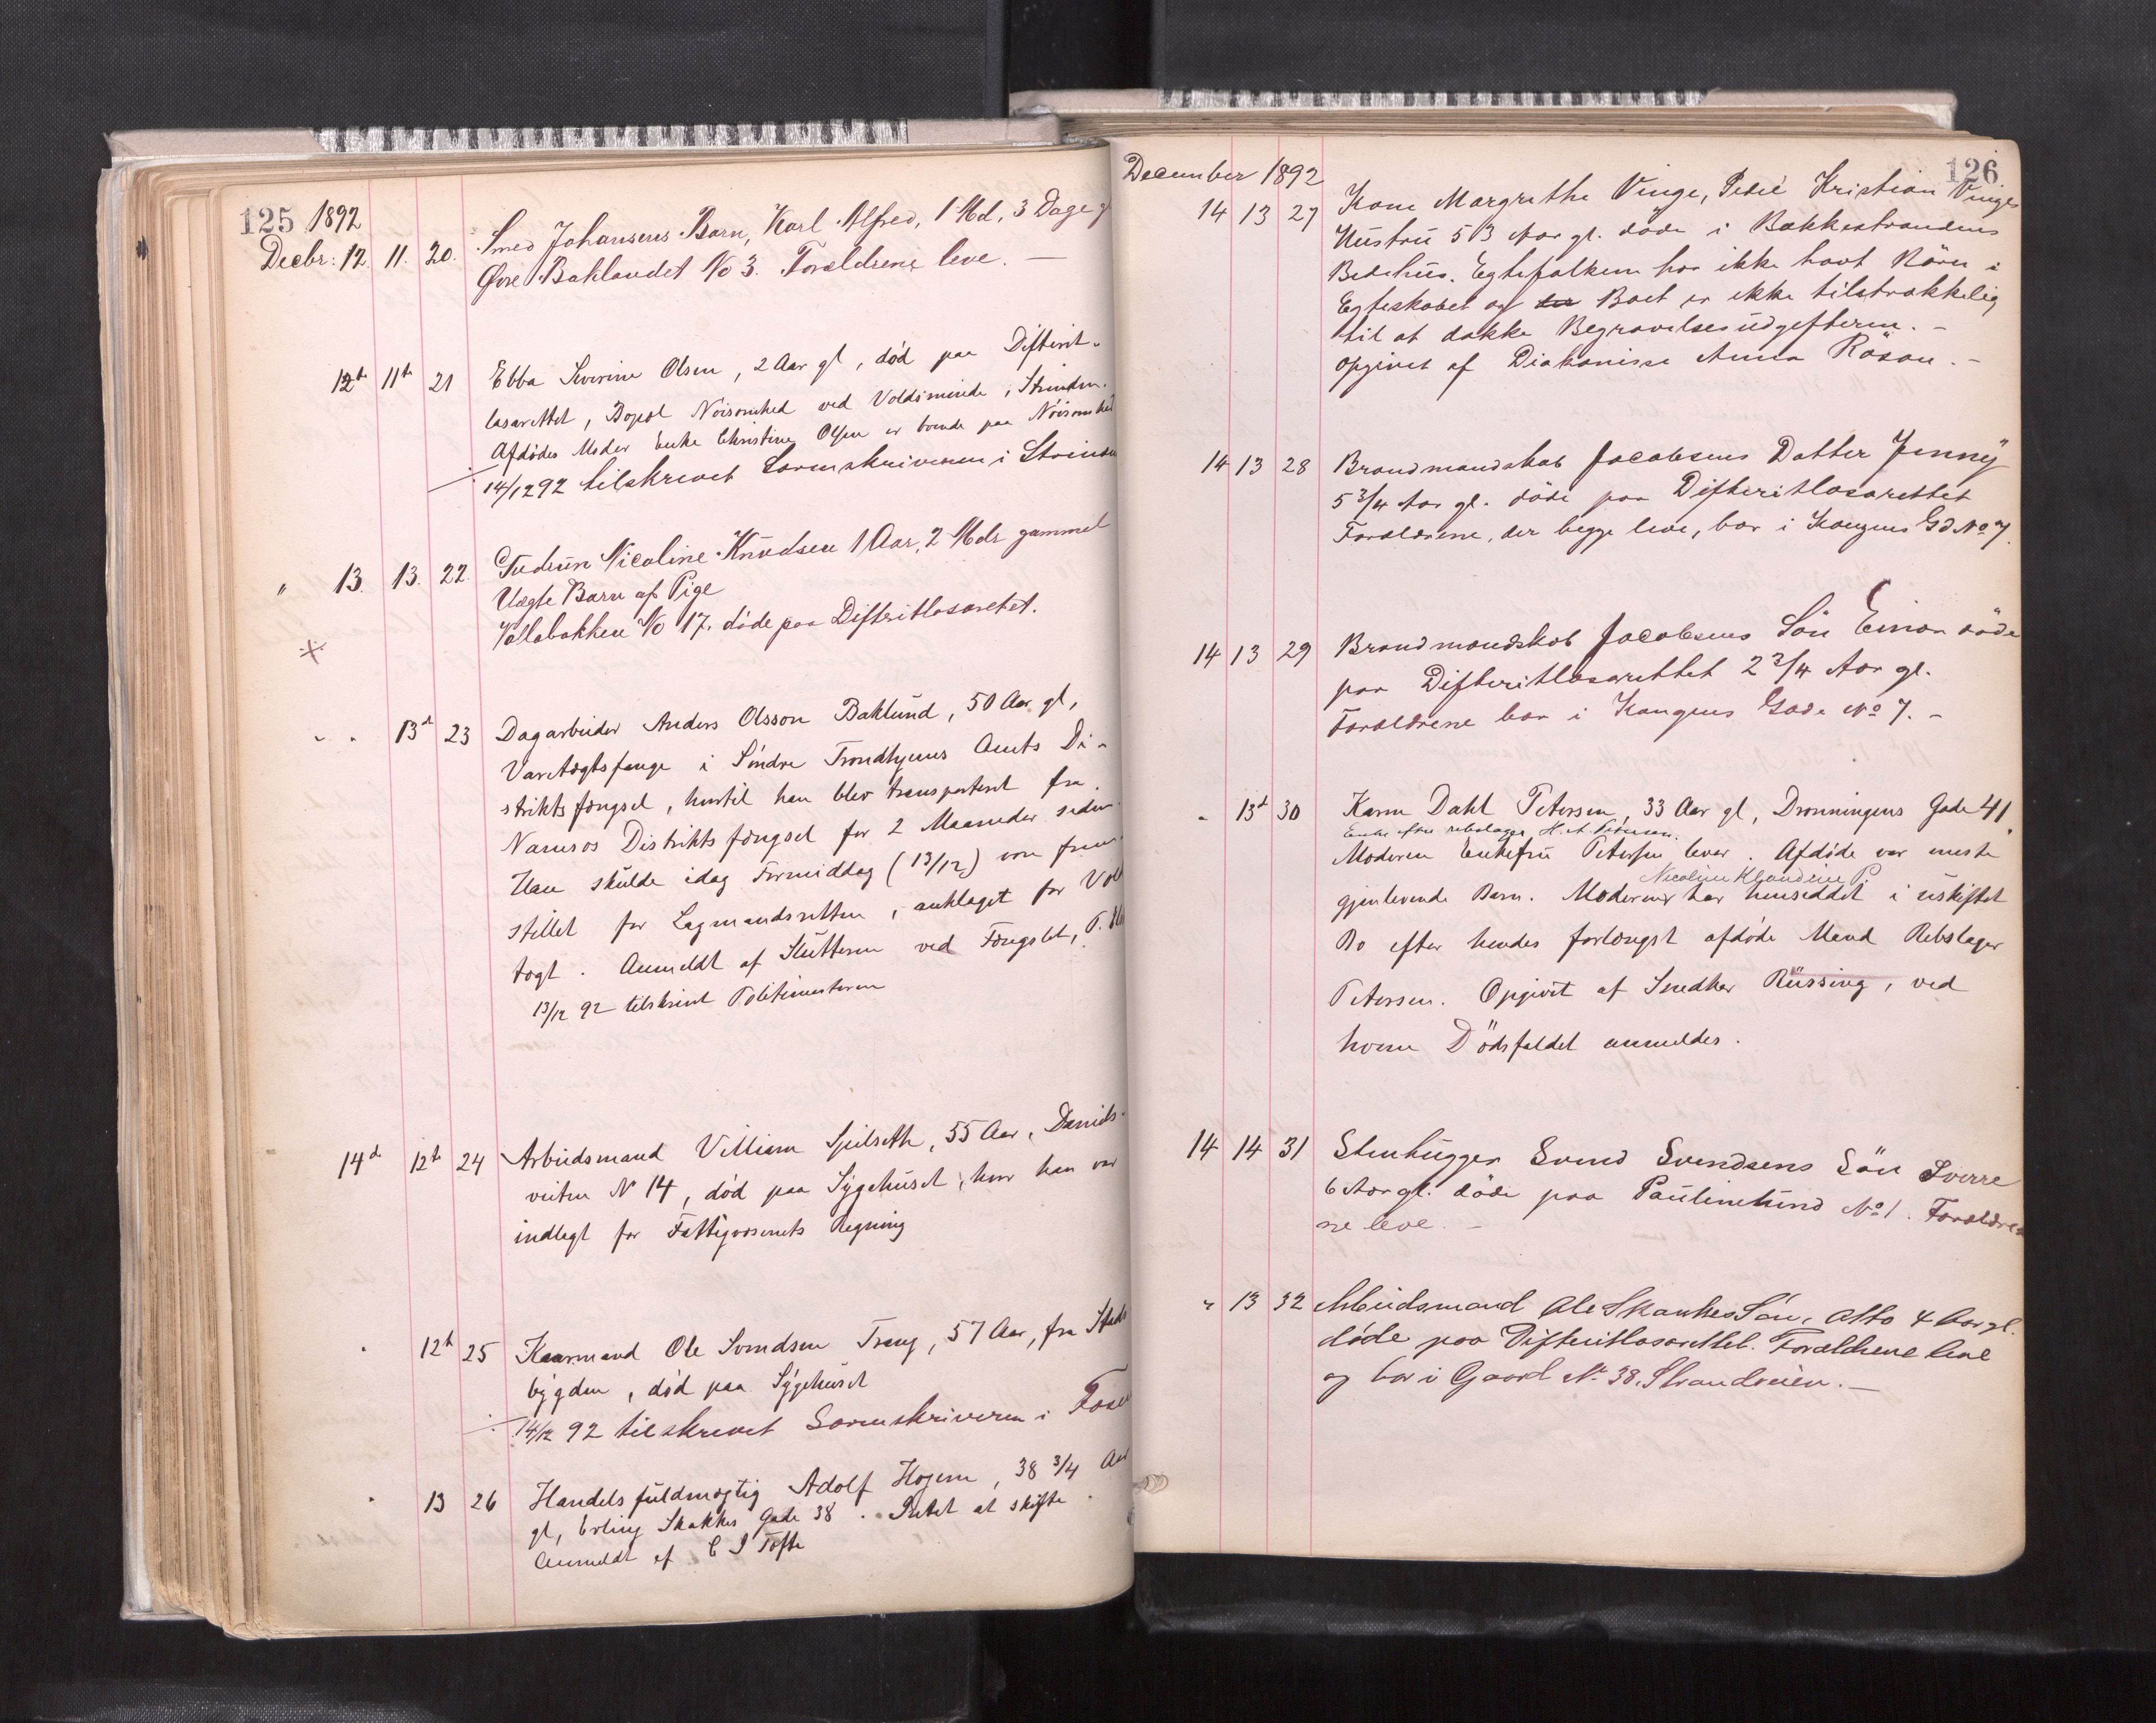 125 1892
Decbr: 12. 11. 20. Smed Johansens Barn, Karl Alfred, 1 Md, 3 Dage g
Øvre Baklandet No 3. Forældrene leve. —
12te 11te 21 Ebba Severine Olsen, 2 Aar gl, død paa Difterit-
lasarettet, Bopæl Nöisomhed ved Voldsminde i Strinden.
Afdødes Moder Enke Christine Olsen er boende paa Nöisomhed
14/12 92 tilskrevet Sorenskriveren i Strinden
" 13. 13. 22. Gudrun Nicoline Knudsen 1 Aar, 2 Mdr gammel
Uægte Barn af Pige
Vollabakken No 17. døde paa Difteritlasaretet.
13d 23 Dagarbeider Anders Olsson Baklund, 50 Aar gl,
Varetægtsfange i Söndre Trondhjems Amts Di-
striktsfængsel, hvortil han blev transporteret fra
Namsos Distriktsfængsel for 2 Maaneder siden.
Han skulde idag Formiddag (13/12) være frem-
stillet for Lagmandsretten, anklaget for Vold
tægt. Anmeldt af Slutteren ved Fængslet,
13/12 92 tilskrevet Politimesteren
14d 12te 24 Arbeidsmand Villiam Sjulseth, 55 Aar, Davids-
veiten N 14, død paa Sygehuset, hvor han var
indlagt for Fattigvæsenets Regning
12te 25 Kaarmand Ole Svendsen Trang, 57 Aar, fra Stads
bygden, död paa Sygehuset
14/12 92 tilskrevet Sorenskriveren i Fosen
13 26 Handelsfuldmægtig Adolf Hogem, 38 3/4 Aar
gl, Erling Skakkes Gade 38. Intet at skifte.
Anmeldt af C J Tofte
126
December 1892
14 13 27 Kone Margrethe Vinge, Kristian Vinges
Hustru 53 Aar gl. døde i Bakkestrandens
Bedehus. Egtefolkene har ikke havt Börn i
Egteskabet og Boet er ikke tilstrækkelig
til at dække Begravelsesudgifterne. –
Opgivet af Diakonisse Anna Rösaa. –
14 13 28 Brandmandskab Jacobsens Datter Jenny
5 3/4 Aar gl. döde paa Difteritlasarettet
Forældrene, der begge leve, bor i Kongens Gd No 7.
14 13 29 Brandmandskab Jacobsens Sön Einar döde
paa Difteritlasarettet 2 3/4 Aar gl.
Forældrene bor i Kongens Gade No 7. –
13d 30 Karen Dahl Petersen, 33 Aar gl, Dronningens Gade 41.
Enke efter rebslager H. A. Petersen.
Moderen Enkefru Petersen lever. Afdöde var eneste
Nicoline Klaudine P.
gjenlevende Barn. Moderen har hensiddet i uskiftet
Bo efter hendes forlængst afdöde Mand Rebslager
Petersen. Opgivet af Snedker Rüssing, ved
hvem Dödsfaldet anmeldes.
14 14 31 Stenhugger Svend Svendsens Sön Sverre
6 Aar gl. döde paa Paulinelund No 1. Forældre
ne leve. –
" 13 32 Arbeidsmand Ole Skankes Sön, Otto 4 Aar gl.
døde paa Difteritlasarettet. Forældrene leve
og bor i Gaard No 38, Strandveien. —